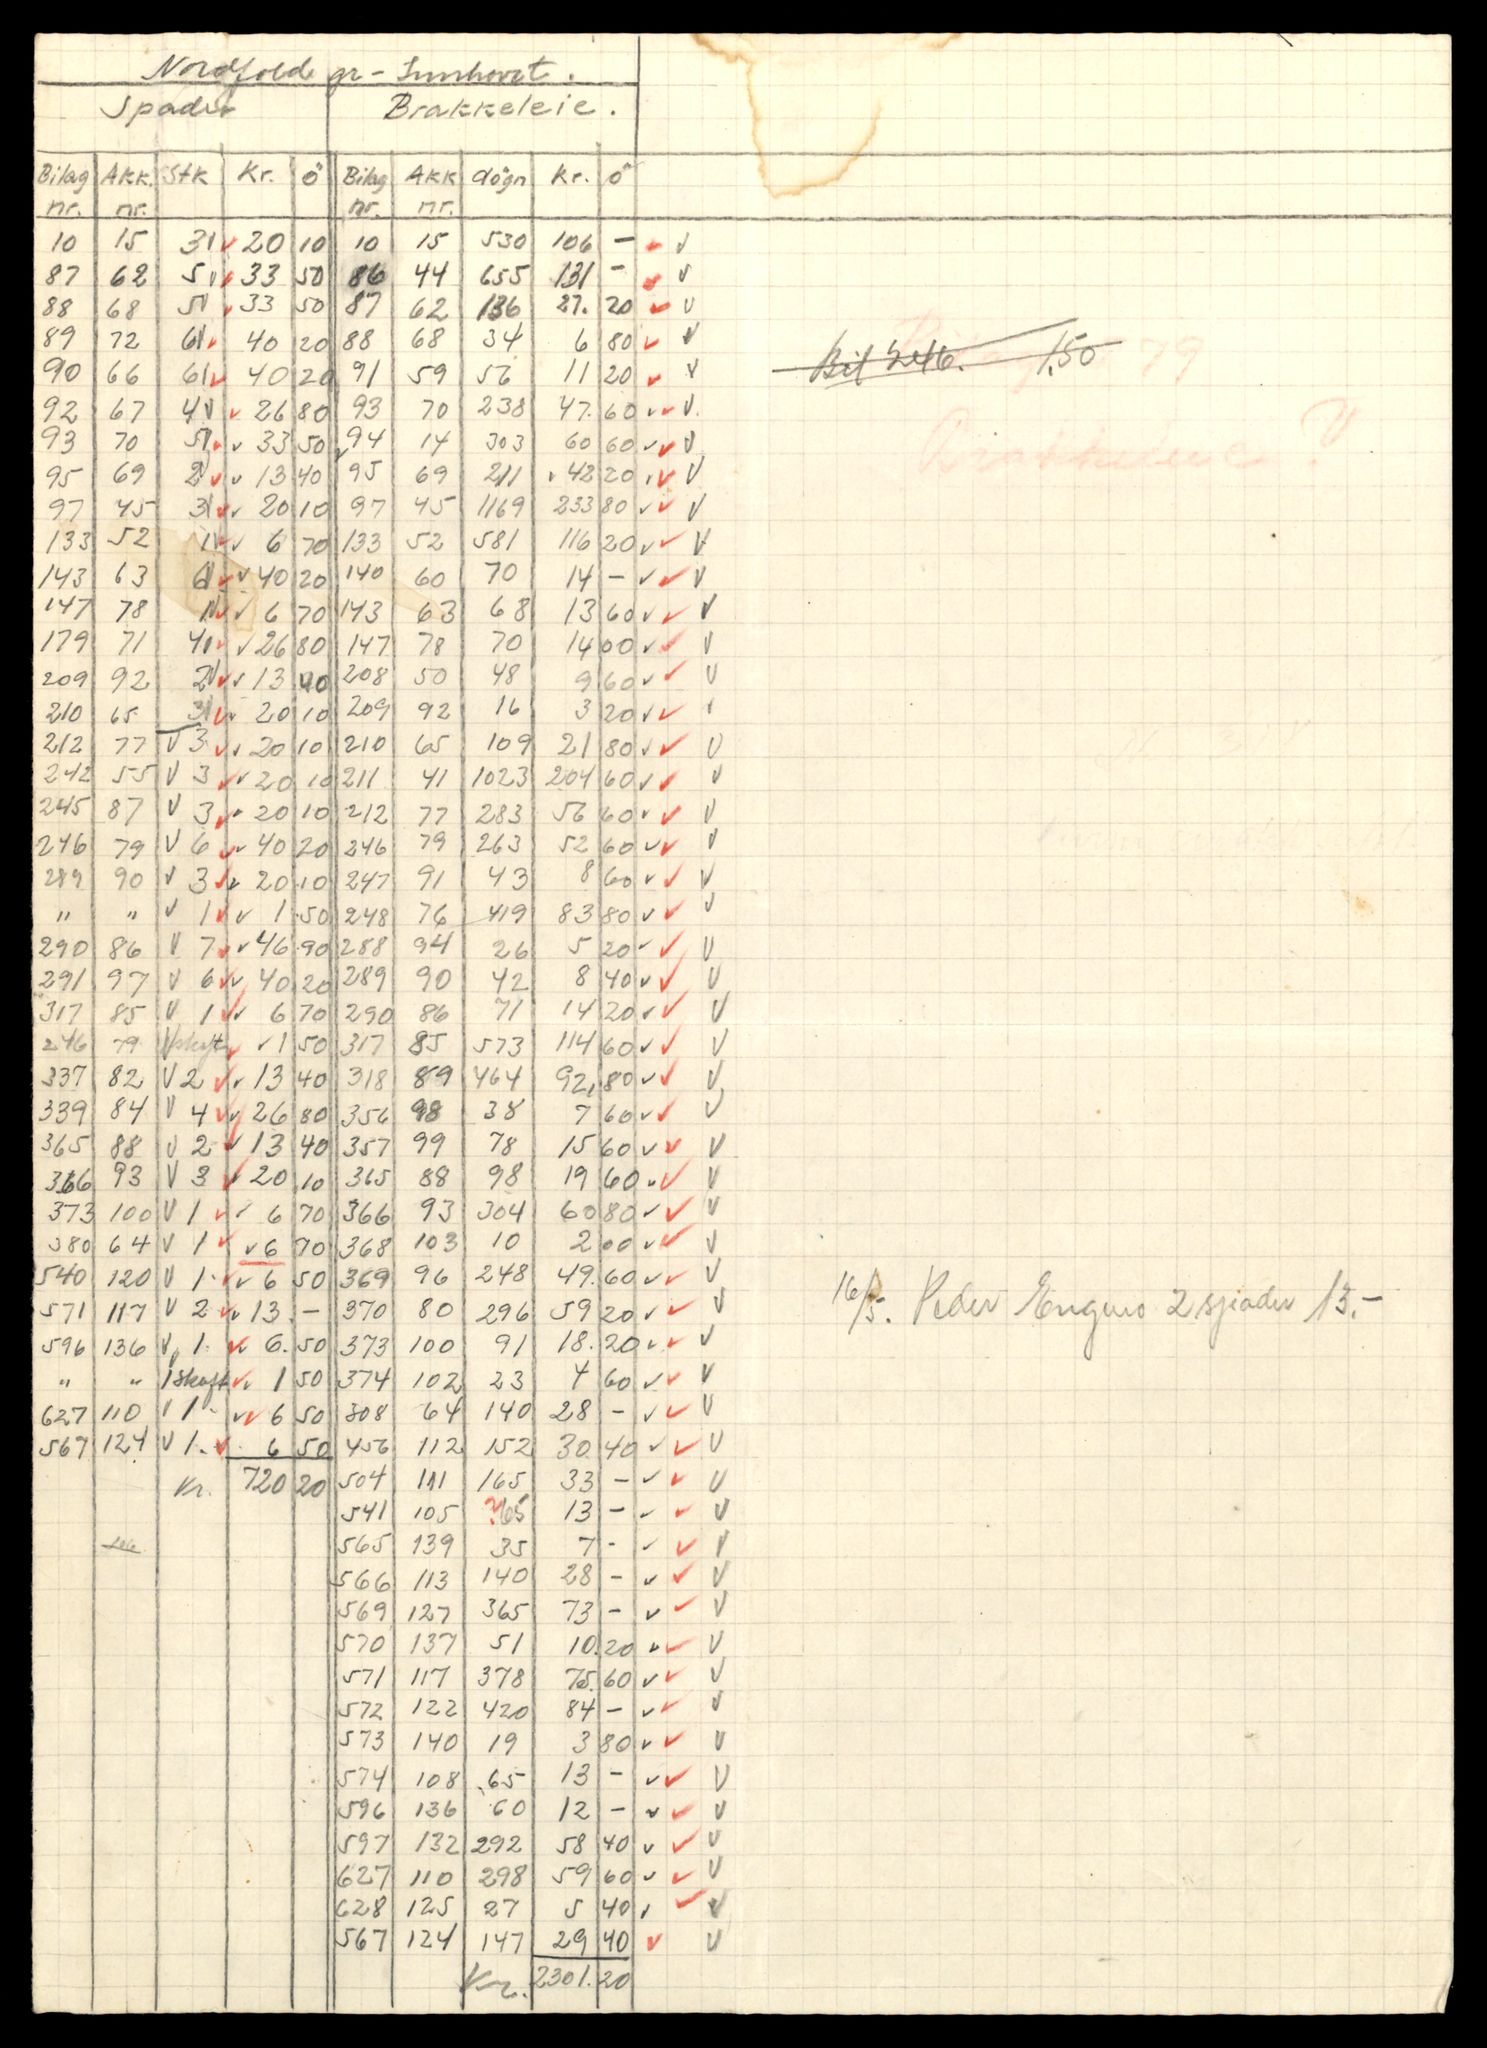 Nordfold gr - Sunhovet.
Spader Brakkeleie.
Bilag nr. Akk. nr. Stk Kr. Ö Bilag nr. Akk nr. dögn kr. ö
10 15 3 20 10 10 15 530 106 -
87 62 5 33 50 86 44 655 131 -
88 68 5 33 50 87 62 136 27. 20
89 72 6 40 20 88 68 34 6 80
90 66 6 40 20 91 59 56 11 20
92 67 4 26 80 93 70 238 47. 60
93 70 5 33 50 94 14 303 60 60
95 69 2 13 40 95 69 211 42 20
97 45 3 20 10 97 45 1169 233 80
133 52 1 6 70 133 52 581 116 20
143 63 6 40 20 140 60 70 14 -
147 78 1 6 70 143 63 68 13 60
179 71 4 26 80 147 78 70 14 00
209 92 2 13 40 208 50 48 9 60
210 65 3 20 10 209 92 16 3 20
212 77 3 20 10 210 65 109 21 80
242 55 3 20 10 211 41 1023 204 60
245 87 3 20 10 212 77 283 56 60
246 79 6 40 20 246 79 263 52 60
289 90 3 20 10 247 91 43 8 60
" " 1 1 50 248 76 419 83 80
290 86 7 46 90 288 94 26 5 20
291 97 6 40 20 289 90 42 8 40
317 85 1 6 70 290 86 71 14 20
246 79 1 skaft 1 50 317 85 573 114 60
337 82 2 13 40 318 89 464 92, 80
339 84 4 26 80 356 98 38 7 60
365 88 2 13 40 357 99 78 15 60
366 93 3 20 10 365 88 98 19 60
373 100 1 6 70 366 93 304 60 80
380 64 1 6 70 368 103 10 2 00
540 120 1 6 50 369 96 248 49. 60
571 117 2 13 - 370 80 296 59 20
596 136 1 6. 50 373 100 91 18. 20
" " 1 skaft 1 50 374 102 23 4 60
627 110 1 6 50 308 64 140 28 -
567 124 1 6 50 456 112 152 30 40
Kr. 720 20 504 111 165 33 -
541 105 ?65 13 -
565 139 35 7 -
566 113 140 28 -
569 127 365 73 -
570 137 51 10. 20
571 117 378 75. 60
572 122 420 84 -
573 140 19 3 80
574 108 65 13 -
596 136 60 12 -
597 132 292 58 40
627 110 298 59 60
628 125 27 5 40
567 124 147 29 40
Kr. 2301. 20
Bil 246. 1,50
16/5. Peder 2 spader 13.-